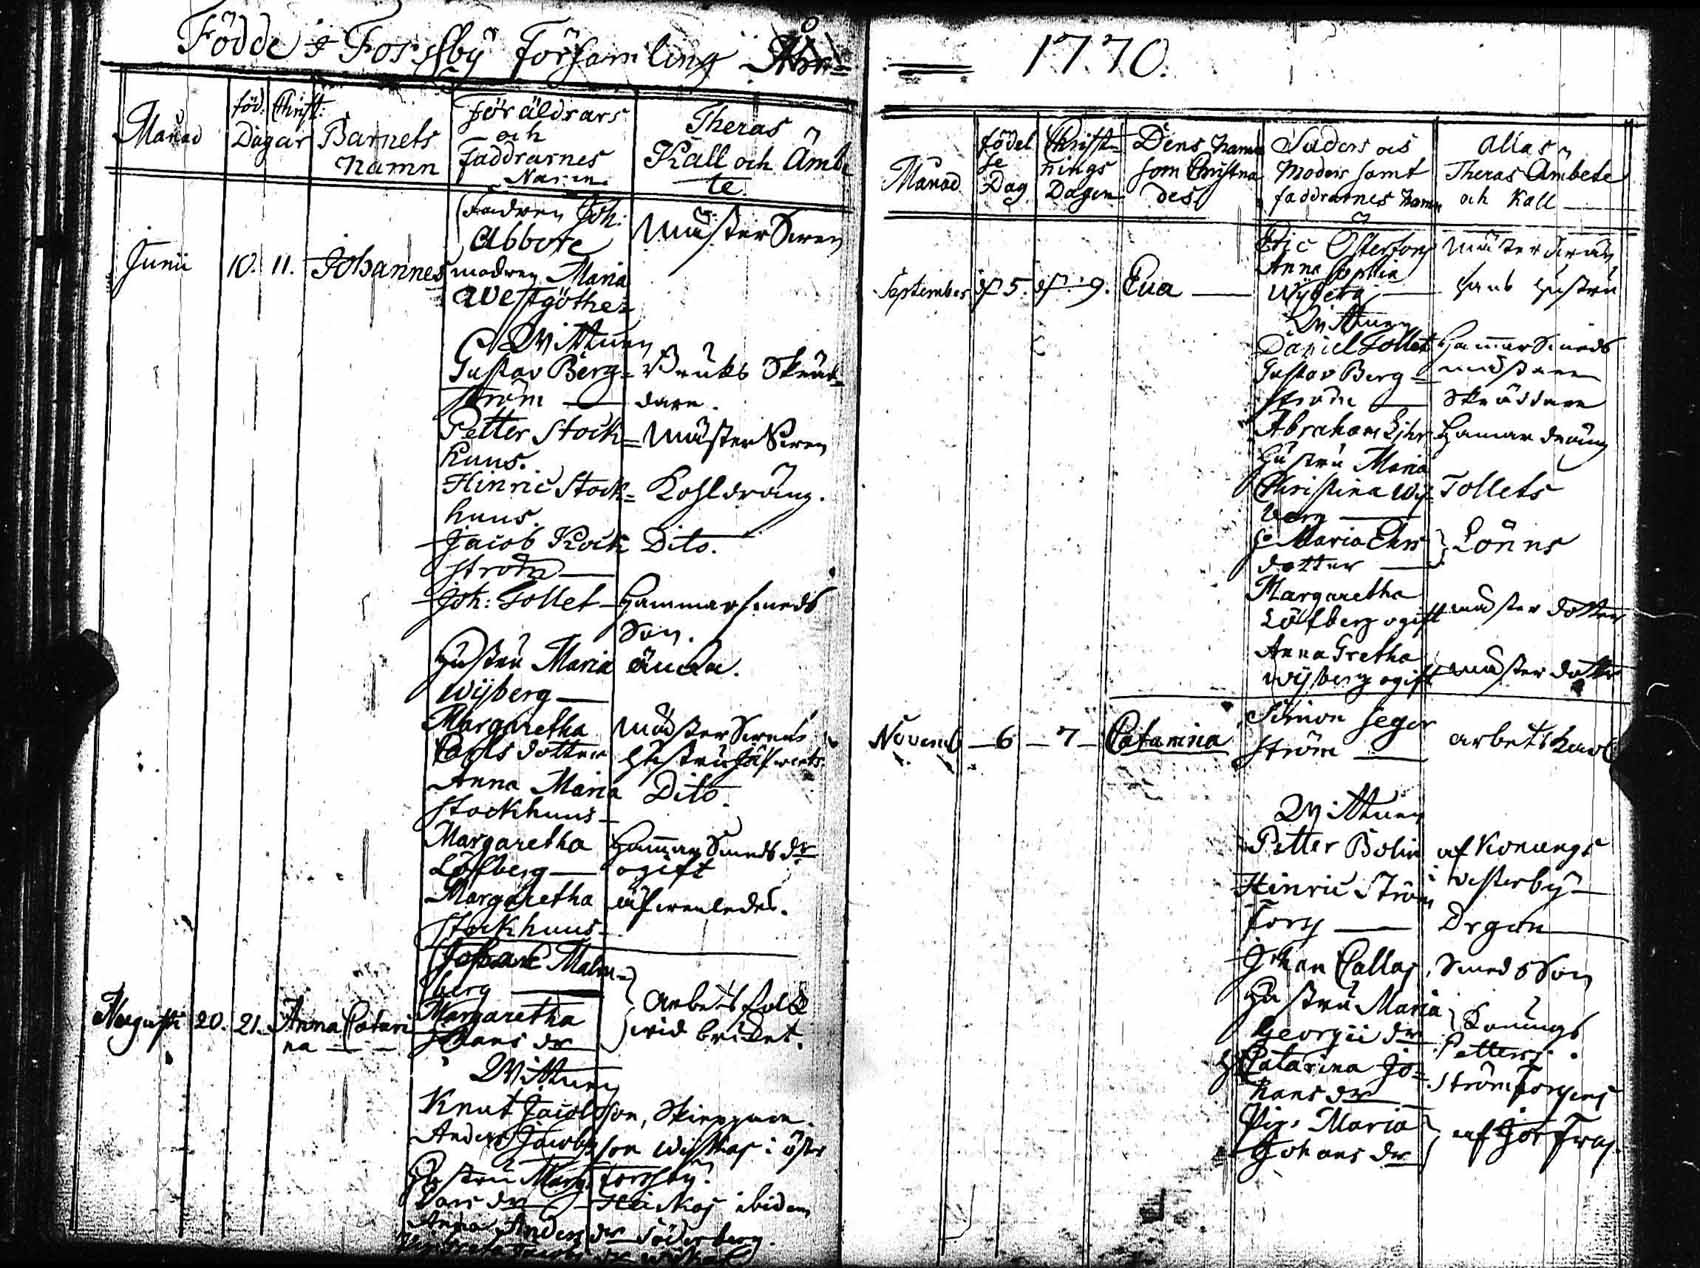 Födde i Forssby församling Åhr
Månad
föd. Christ:
Dagar
Barnets
namn
föräldrars
och
faddrarnes
Namn
Theras
Kall och Ämbe
te
Junii
10.
11.
Johannes
Fadren Joh:
Abbore
modren Maria
Westgöthe
Mästersven
Wittnen
Gustav Berg=
ström
Bruks Skräd=
dare.
Petter Stock=
huus.
Mästersven
Hinric Stock=
huus
Kohldräng.
Jacob Kock
ström
Dito.
Joh: Tollet
Hammarsmeds
Son.
Hustru Maria
Wijberg
änkia.
Margaretha
Carls dotter
Mästersvens
Hustru
Anna Maria
Stockhuus
Dito.
Margaretha
Löfberg
Hammar Smeds dr
ogift
Margaretha
Stockhuus
Augusti
20.
21.
Anna Catari
na
Johan Malm=
berg
Margaretha
Johans dr
arbets folk
vid bruket.
Wittnen
Knut Jacobsson, Skeppare
Anders Jacobsson i öster
Hustru Marg. Forssby.
Lars dr ibidem
Anna Anders dr Söderberg.
1770.
Månad
födel
se
Dag
Christ=
nings
Dagen
Dens namn
som Christna
des
Faders och
Moders samt
faddrarnes namn
allas
Theras Ämbete
och Kall
September
d 5.
d 9.
Eva
Eric Österfors
Anna Sophia
Wijberg
Mästersven
Hans Hustru
Wittnen
Daniel Tollet
Hammarsmeds
mästare
Gustav Berg=
ström
Skräddare
Abraham
Hamardräng
Hustru Maria
Christina Wij
berg
Tollets
H. Maria Ehrs
dotter
Lönns
Margaretha
Löfberg ogift
mäster dotter
Anna Gretha
Wijberg ogift
mäster dotter
Novemb
6
7
Catarina
Simon Jeger
ström
arbets karl
Wittnen
Petter Bolin
af Konungs
westerby
Hinric Ström
fors
Drgon
Johan Callas
Smeds Son
Hustru Maria
Georgii dr
Konungs
Petters
H Catarina Jo=
hans dr
Strömforsens
Pig. Maria
Johans dr